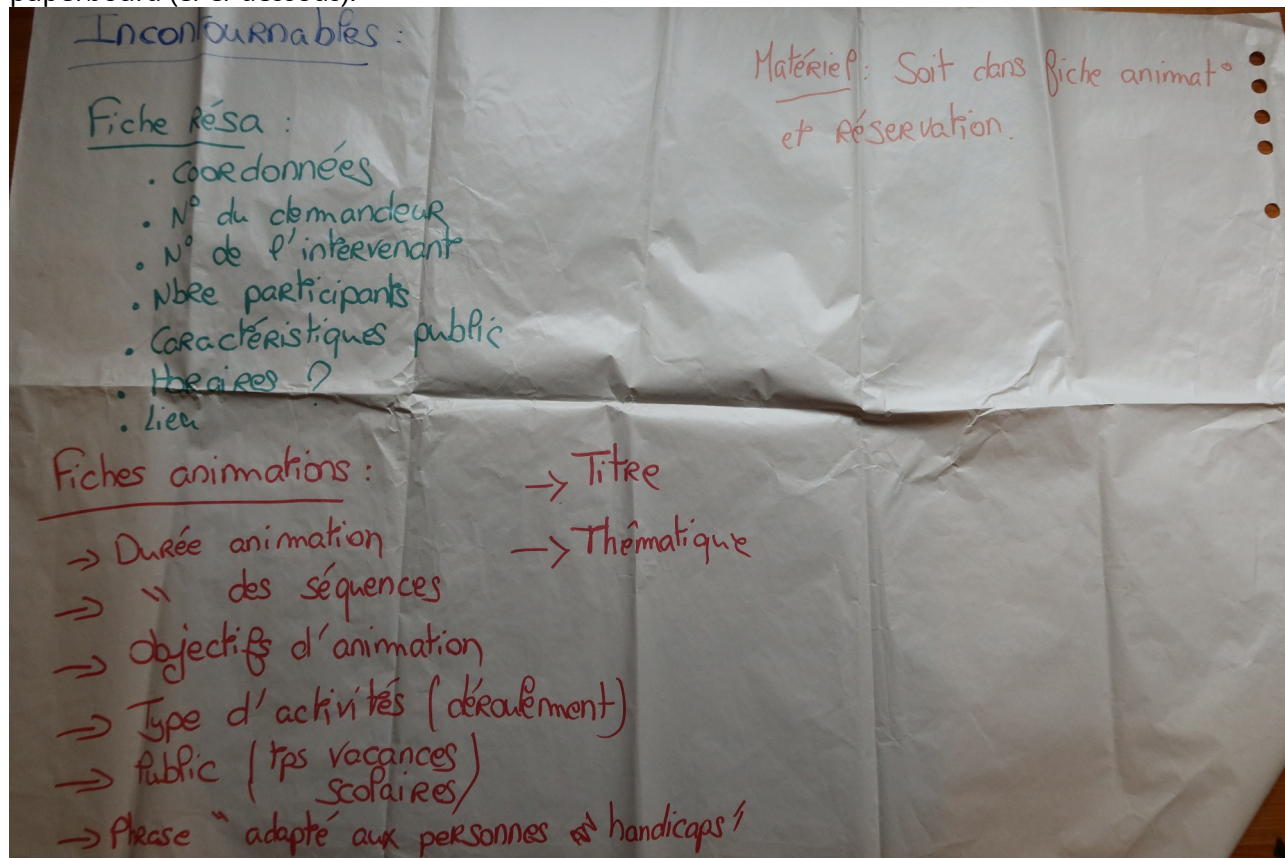 Incontournables :
Fiche Résa :
. Coordonnées
. N° du demandeur
. N° de l'intervenant
. Nbre participants
. Caractéristiques public
. Horaires ?
. Lieu
Matériel : Soit dans fiche animat°
et Réservation.
Fiches animations :
→ Durée animation
→ " des séquences
→ Objectifs d'animation
→ Type d'activités (déroulement)
→ Public (tps vacances
scolaires)
→ Phrase "adapté aux personnes handicaps"
→ Titre
→ Thêmatique